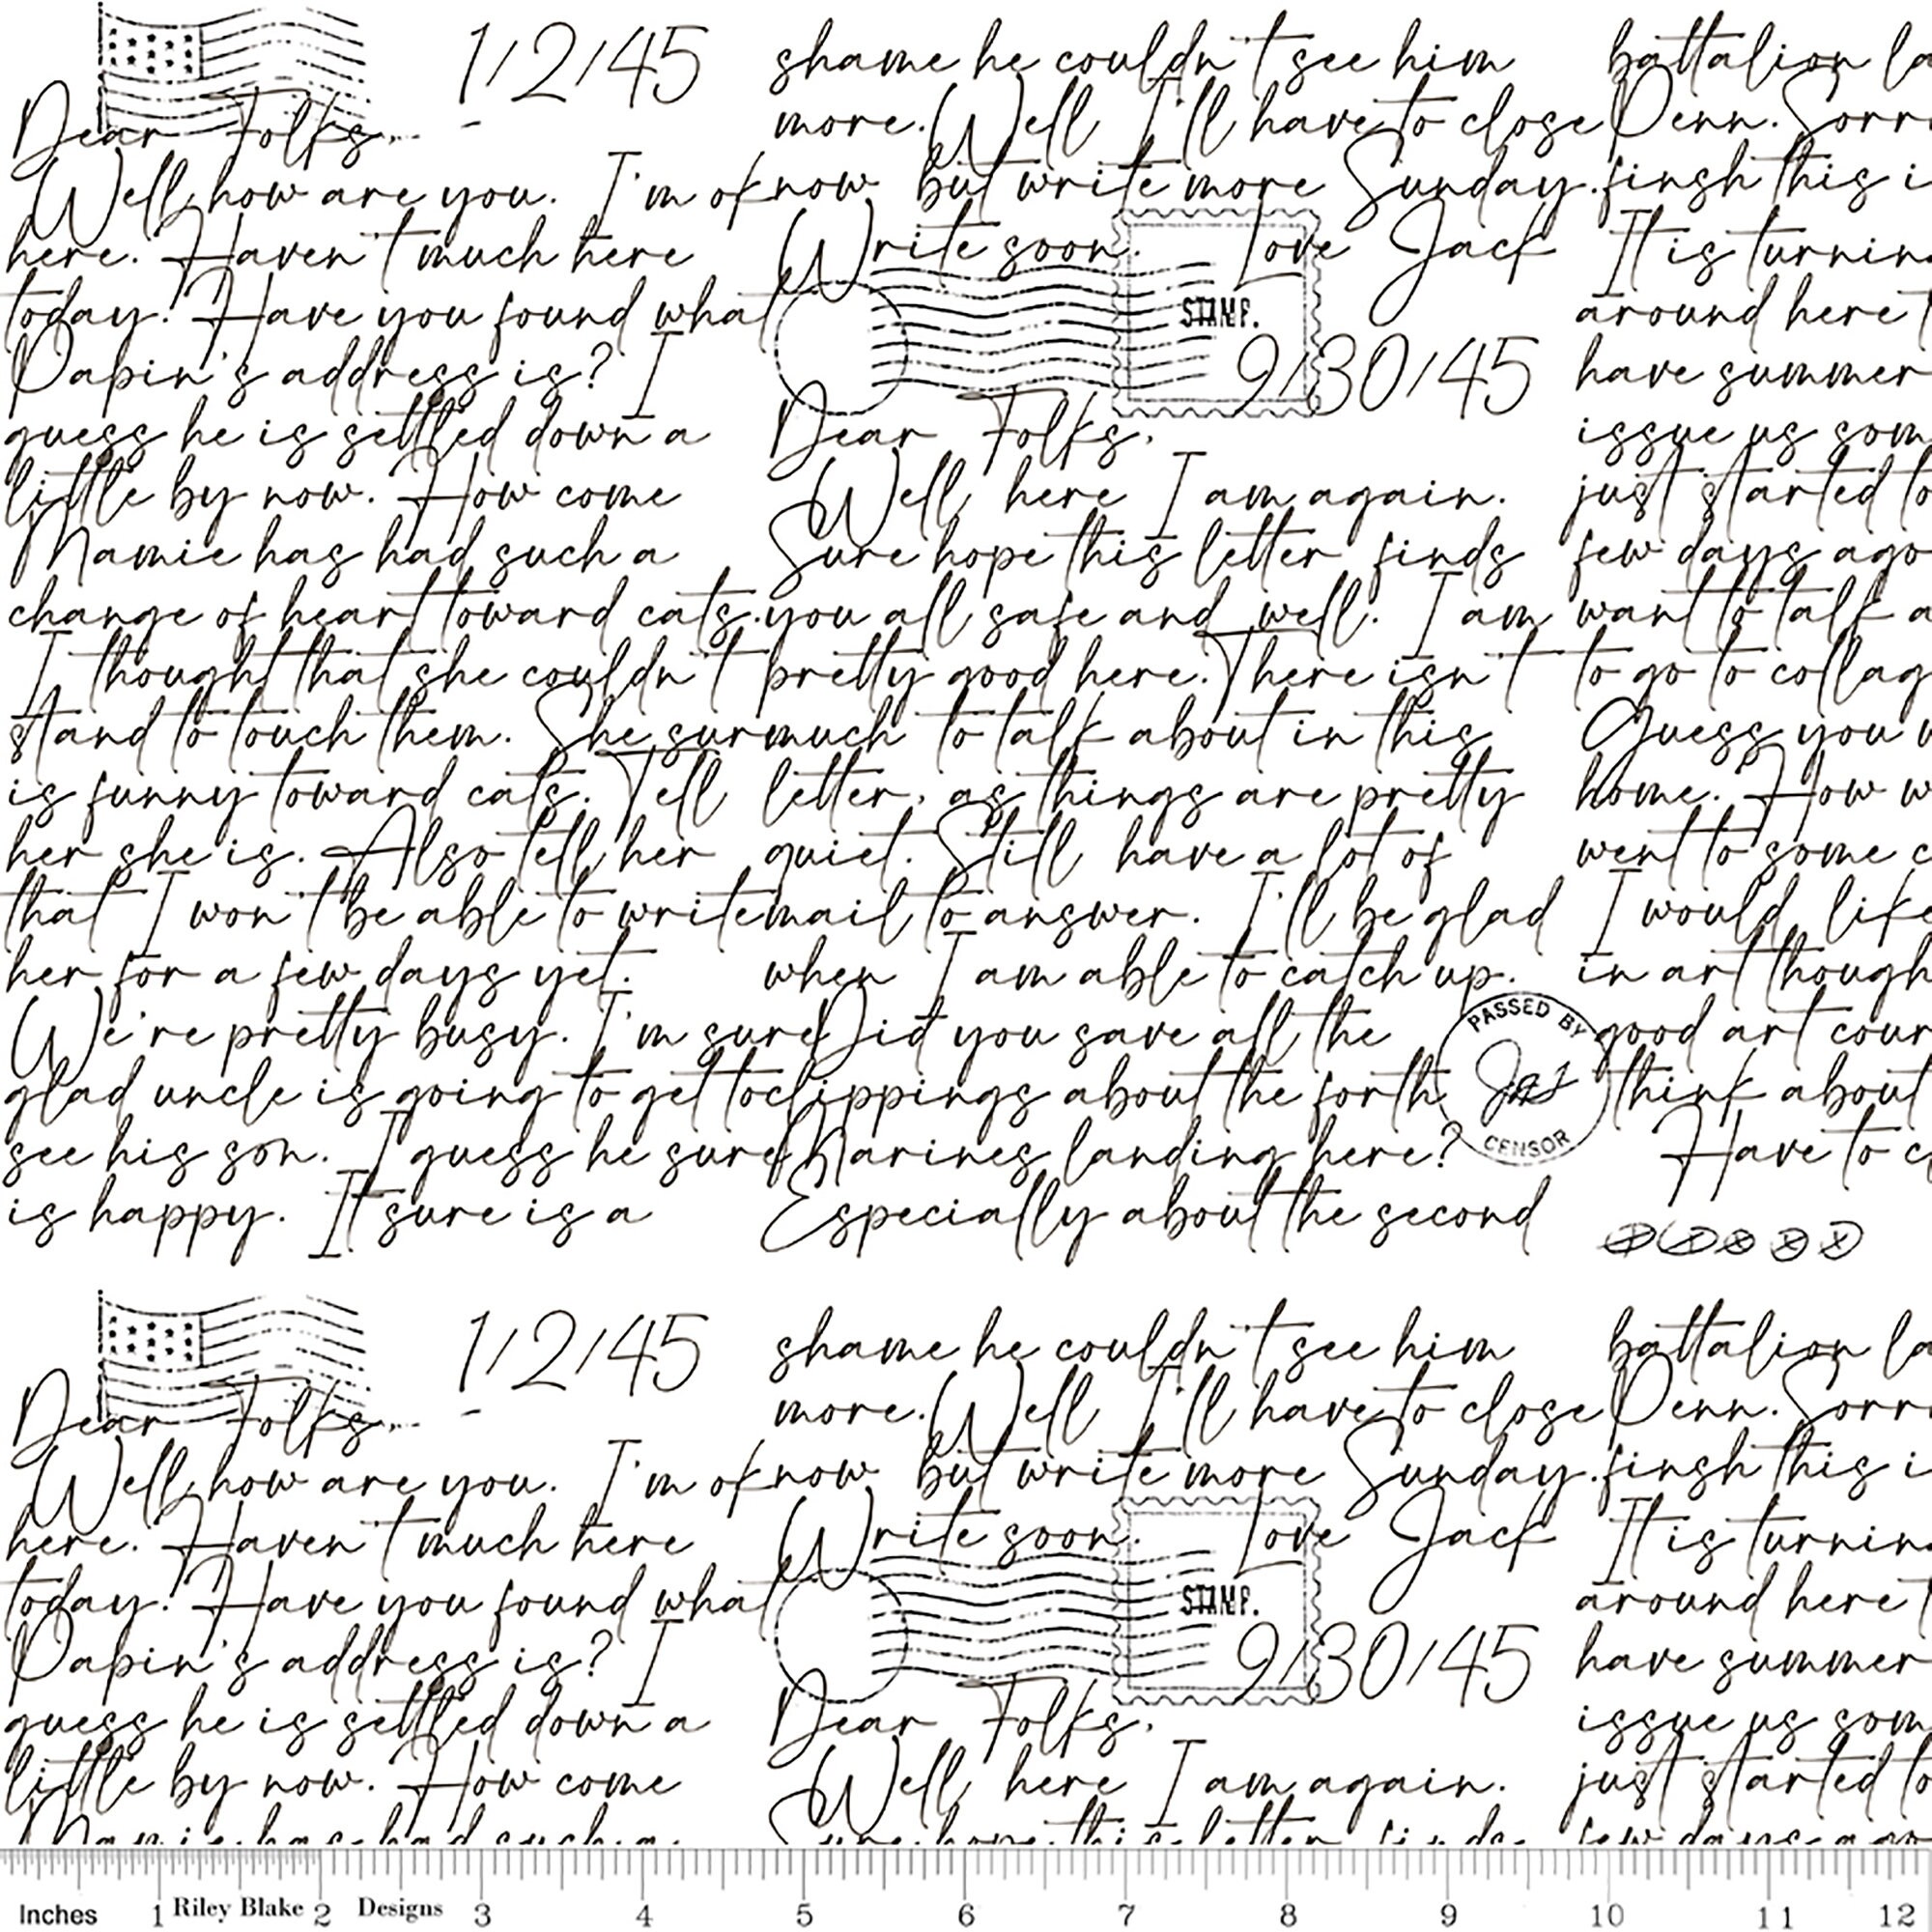 1/2/45
Dear Folks,
Well, how are you. I'm ok
here. Haven't much here
today. Have you found what
Papin's address is? I
guess he is settled down a
little by now. How come
Mamie has had such a
change of heart toward cats.
I thought that she couldn't
stand to touch them. She sur
is funny toward cats. Tell
her she is. Also tell her
that I won't be able to write
her for a few days yet.
We're pretty busy. I'm sure
glad uncle is going to get to
see his son. I guess he sure
is happy. It sure is a
shame he couldn't see him
more. Well I'll have to close
now but write more Sunday.
Write soon. Love Jack
STAMP.
9/30/45
Dear Folks,
Well, here I am again.
Sure hope this letter finds
you all safe and well. I am
pretty good here. There isn't
much to talk about in this
letter, as things are pretty
quiet. Still have a lot of
mail to answer. I'll be glad
when I am able to catch up.
Did you save all the
clippings about the forth
Marines landing here?
Especially about the second
PASSED BY
CENSOR
battalion la
Penn. Sorr
finsh this i
It is turnin
around here t
have summer
issue us som
just started to
few days ago
want to talk a
to go to collag
Guess you w
home. How w
went to some c
I would like
in art though
good art cour
think about
Have to c
1/2/45
Dear Folks,
Well, how are you. I'm ok
here. Haven't much here
today. Have you found what
Papin's address is? I
guess he is settled down a
little by now. How come
Mamie has had such a
shame he couldn't see him
more. Well I'll have to close
now but write more Sunday.
Write soon. Love Jack
STAMP.
9/30/45
Dear Folks,
Well, here I am again.
Sure hope this letter finds
battalion la
Penn. Sorr
finsh this i
It is turnin
around here t
have summer
issue us som
just started to
few days ago
Inches 1 Riley Blake 2 Designs 3 4 5 6 7 8 9 10 11 12